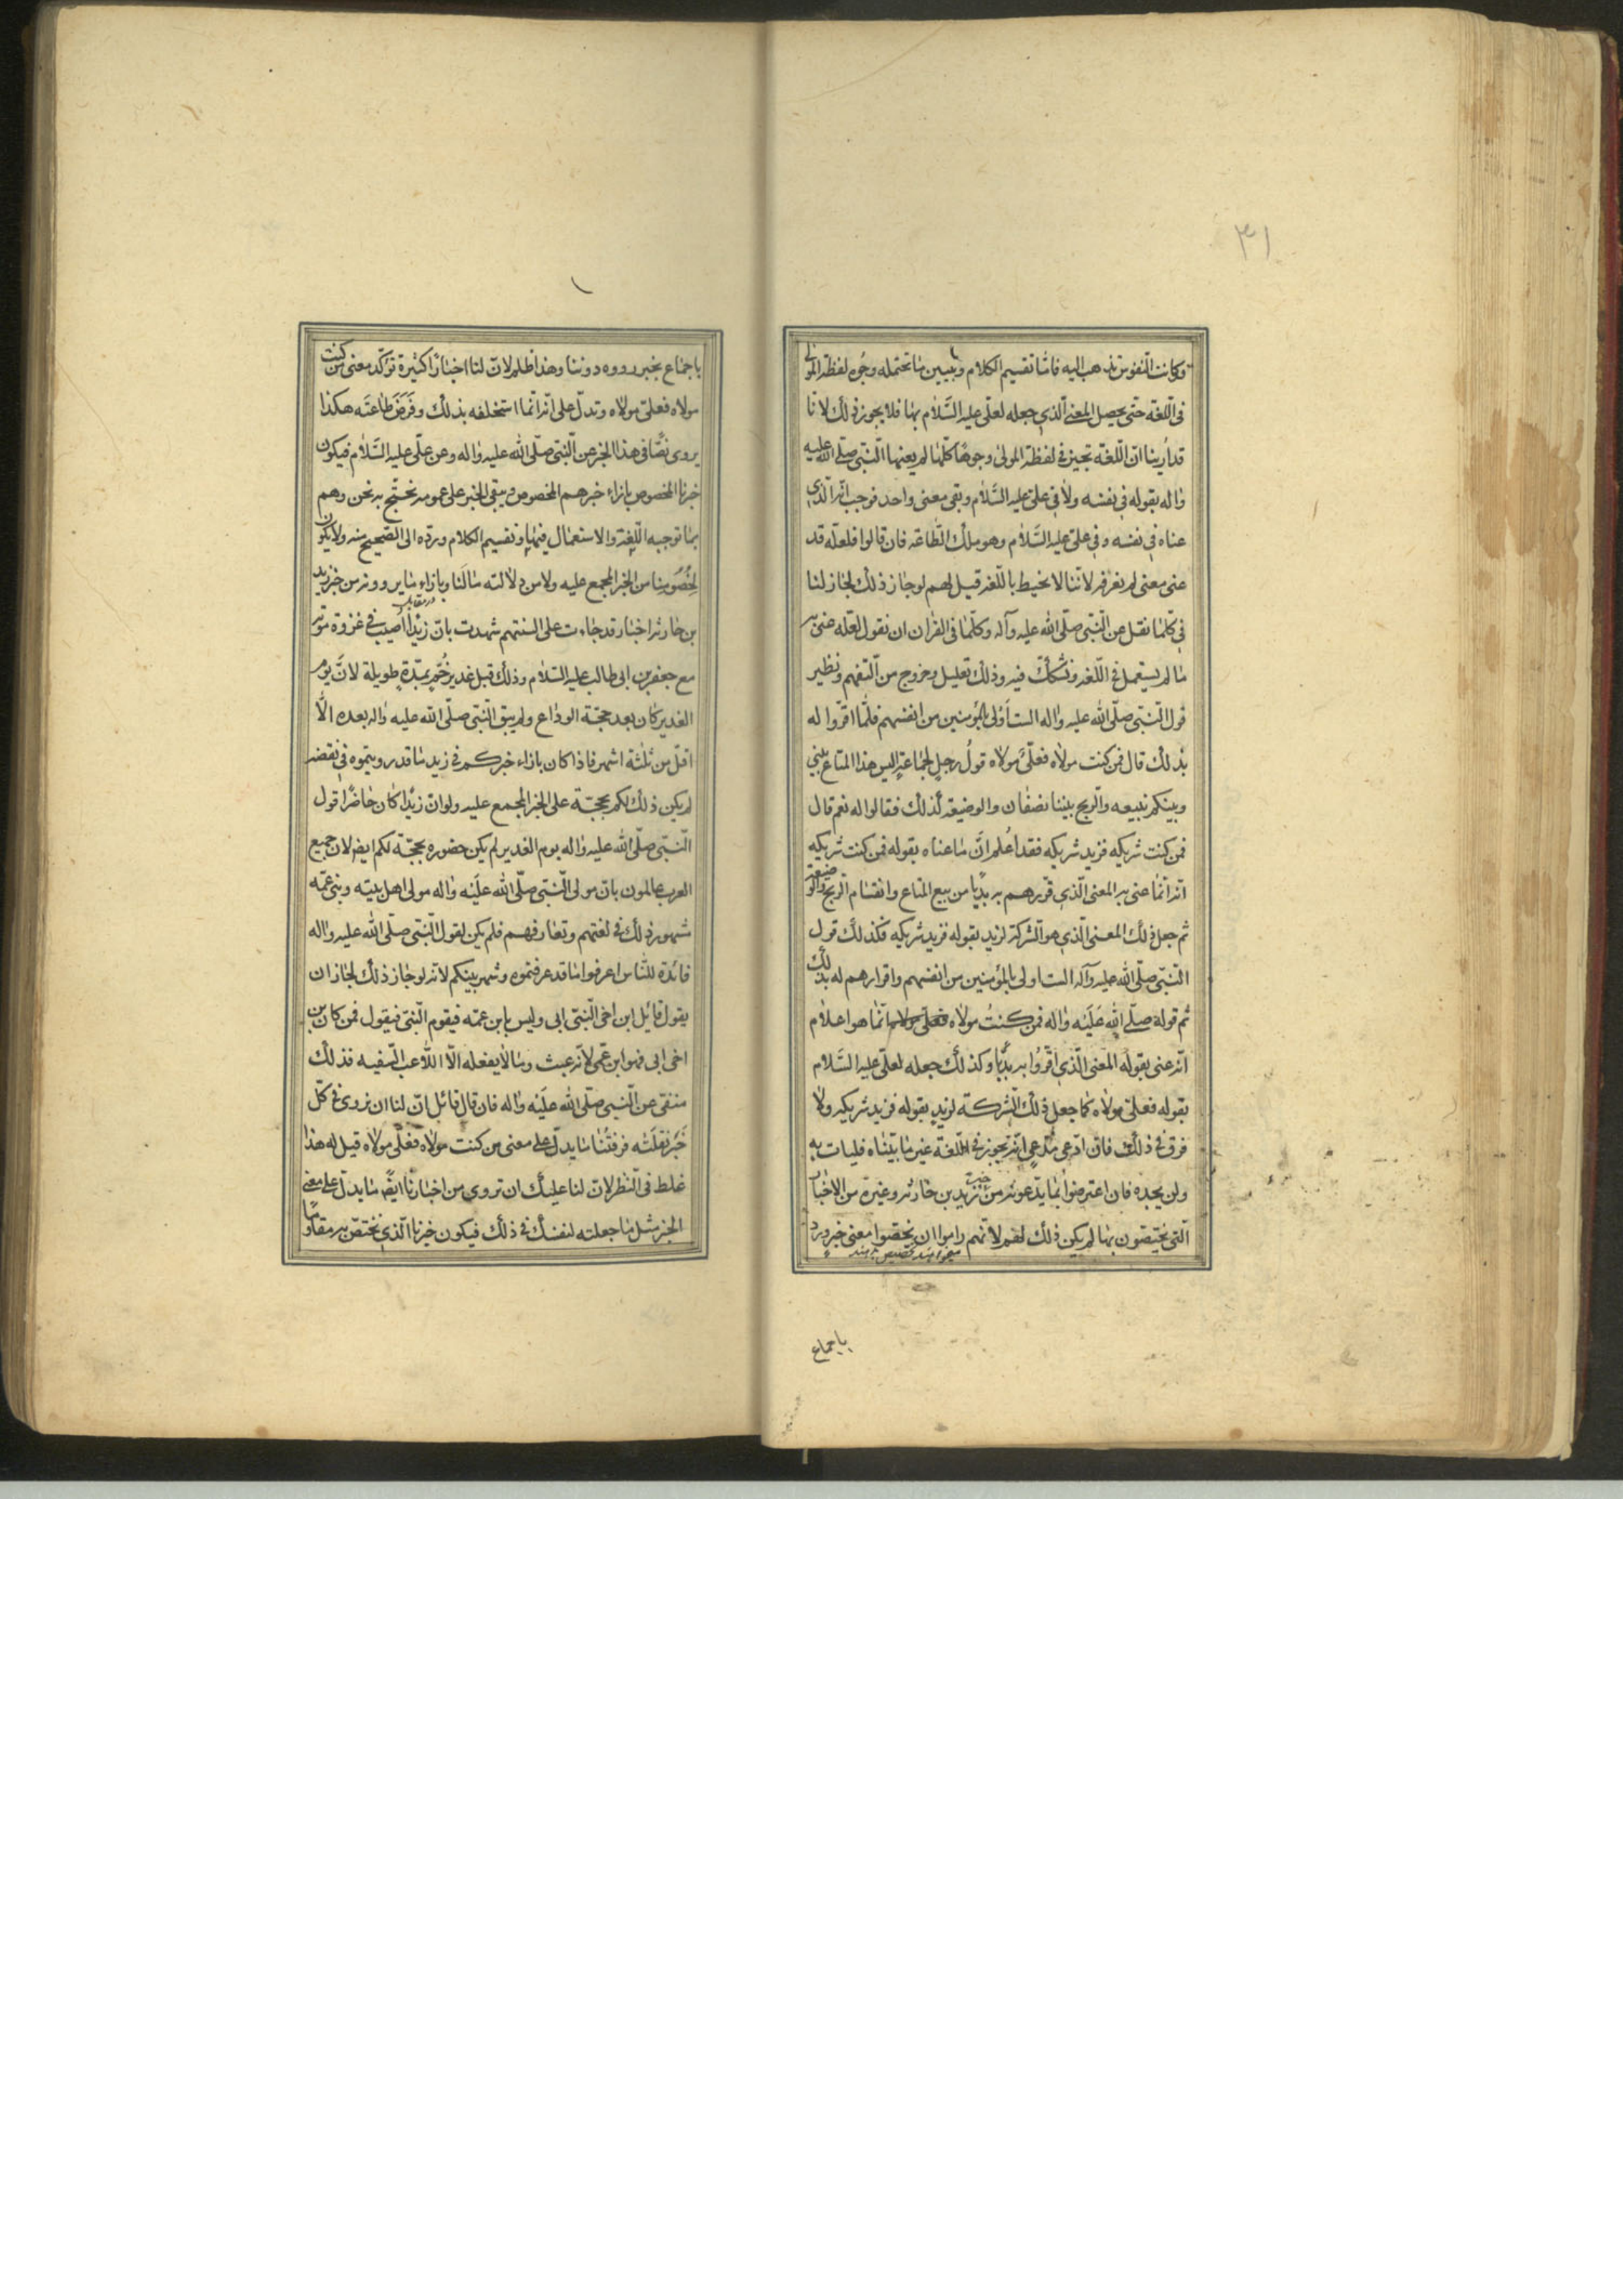 ٣١
وكانت النفوس تذهب اليه فامّا تقسيم الكلام وتبيين ما تحتمله وجوه لفظة المولى
فى اللّغة حتّى يحصل المعنى الّذى جعله لعلّى عليه السَّلام بها فلا يجوز ذلك لانّا
قد أرينا انّ اللّغة تجيز فى لفظة المولى وجوهًا كلّها لم يعنها النّبّى صلّى الله عليه
واله بقوله فى نفسه ولا فى علّى عليه السَّلام وبقى معنى واحد فوجب انّه الّذى
عناه فى نفسه وفى علّى عليه السَّلام وهو ملك الطّاعة فان قالوا فلعلّه قد
عنى معنى لم نعرفه لانّنا لا نحيط باللّغة قيل لهم لو جاز ذلك لجاز لنا
فى كلّما نقل عن النّبّى صلّى الله عليه وآله وكلّما فى القرأن ان نقول لعلّه عنى به
ما لم يستعمل فى اللّغة ونشكّك فيه وذلك تعليل وخروج من التّفهم ونظير
قول النّبّى صلّى الله عليه واله الست أولى بالمؤمنين من انفسهم فلمّا اقرّوا له
بذلك قال فمن كنت مولاه فعلّى مولاه قول رجل لجماعة اليس هذا المتاع بينى
وبينكم نبيعه والرّبح بيننا نصفان والوضيعة كذلك فقالوا له نعم قال
فمن كنت شريكه فزيد شريكه فقد اُعلم انّ ما عناه بقوله فمن كنت شريكه
انّه انّما عنى به المعنى الّذى قرّرهم به بديًا من بيع المتاع وانقسام الرّبح والوضيعة
ثم جعل ذلك المعنى الّذى هو الشركة لزيد بقوله فزيد شريكه فكذلك قول
النّبّى صلّى الله عليه وآله الست اولى بالمؤمنين من انفسهم واقرارهم له بذلك
ثم قوله صلّى الله عَلَيْه واله فمن كنتُ مولاه فعلّى مولاه انّما هو اعلام
انّه عنى بقوله المعنى الّذى اقرّوا به بديًّا وكذلك جعله لعلّى عليه السَّلام
بقوله فعلّى مولاه كما جعل ذلك الشركة لزيد بقوله فزيد شريكه ولا
فرق فى ذلك فان ادّعى مدّعى انّه تجوز فى اللّغة غير ما بيّنّاه فليات به
ولن يجده فان اعترضوا بما يدّعونه من خبر زيد بن حارثه وغيره من الاخبار
الّتى يختصّون بها لم يكن ذلك لهم لانّهم راموا ان يخصّوا معنى خبر ورد
ميخواهند تخصيص بدهند
باجماع
باجماع بخبر رووه دوننا وهذا ظلم لانّ لنا اخبارًا كثيرة تؤكّد معنى من كنت
مولاه فعلّى مولاه وتدلّ على انّه انّما استخلفه بذلك وفَرَضَ طاعتَه هكذا
يروى نصًّا فى هذا الخبر عن النّبّى صلّى الله عليه واله وعن علّى عليه السَّلام فيكون
خبرنا المخصوص بازاء خبرهم المخصوص ويبقى الخبر على عمومه نحتجّ به نحن وهم
بما توجبه اللّغة والاستعمال فيها وتقسيم الكلام وردّه الى الصّحيح منه ولا يكون
لخصومنا من الخبر المجمع عليه ولا من دلالته ما لنا وبازاء ما يروونه من خبر زيد
در مقابل
بن حارثه اخبار قد جاءت على السنتهم شهدت بانّ زيدًا أصيب فى غزوة موته
مع جعفر بن ابى طالب عليه السّلام وذلك قبل غدير خُمّ بمدّة طويلة لانَّ يوم
الغدير كان بعد حجّة الوداع ولم يبق النّبّى صلّى الله عليه واله بعده الّا
اقلّ من ثلثة اشهر فاذا كان بازاء خبركم فى زيد ما قد رويتموه فى نقضه
لم يكن ذلك لكم بحجّة على الخبر المجمع عليه ولو انّ زيدًا كان حاضرًا قول
النّبّى صلّى الله عليه واله يوم الغدير لم يكن حضوره بحجّة لكم ايضا لان جميع
العرب عالمون بانّ مولى النّبّى صلّى الله علَيْه واله مولى اهل بيته وبنى عمّه
مشهور ذلك فى لغتهم وتعارفهم فلم يكن لقول النّبّى صلّى الله عليه واله
فائدة للنّاس اعرفوا ما قد عرفتموه وشهر بينكم لانّه لو جاز ذلك لجاز ان
يقول قائل ابن اخى النّبّى ابى وليس بابن عمّه فيقوم النّبّى فيقول فمن كان ابن
اخى ابى فهو ابن عمّى لانّه عبث وما لا يفعله الّا اللاعب السّفيه فذلك
منفى عن النّبّى صلّى الله علَيْه واله فان قال قائل انّ لنا ان نروى فى كلّ
خَبَر نَقلَتْه فرقتُنا ما يدلّ على معنى من كنت مولاه فعلّى مولاه قيل له هذا
غلط فى النّظر لانّ لنا عليك ان تروى من اخبارنا ايضًا ما يدلّ على معنى
الخبر مثل ما جعلته لنفسك فى ذلك فيكون خبرنا الّذى نختصّ به مقاومًا